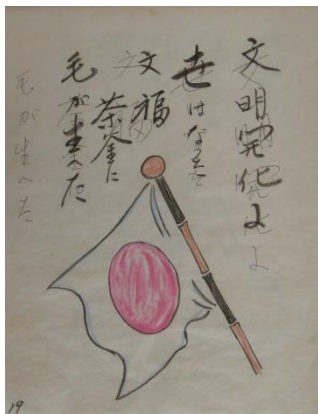 文明開化よ
世は
文福
茶釜に
毛が生へた
毛が生へた
19